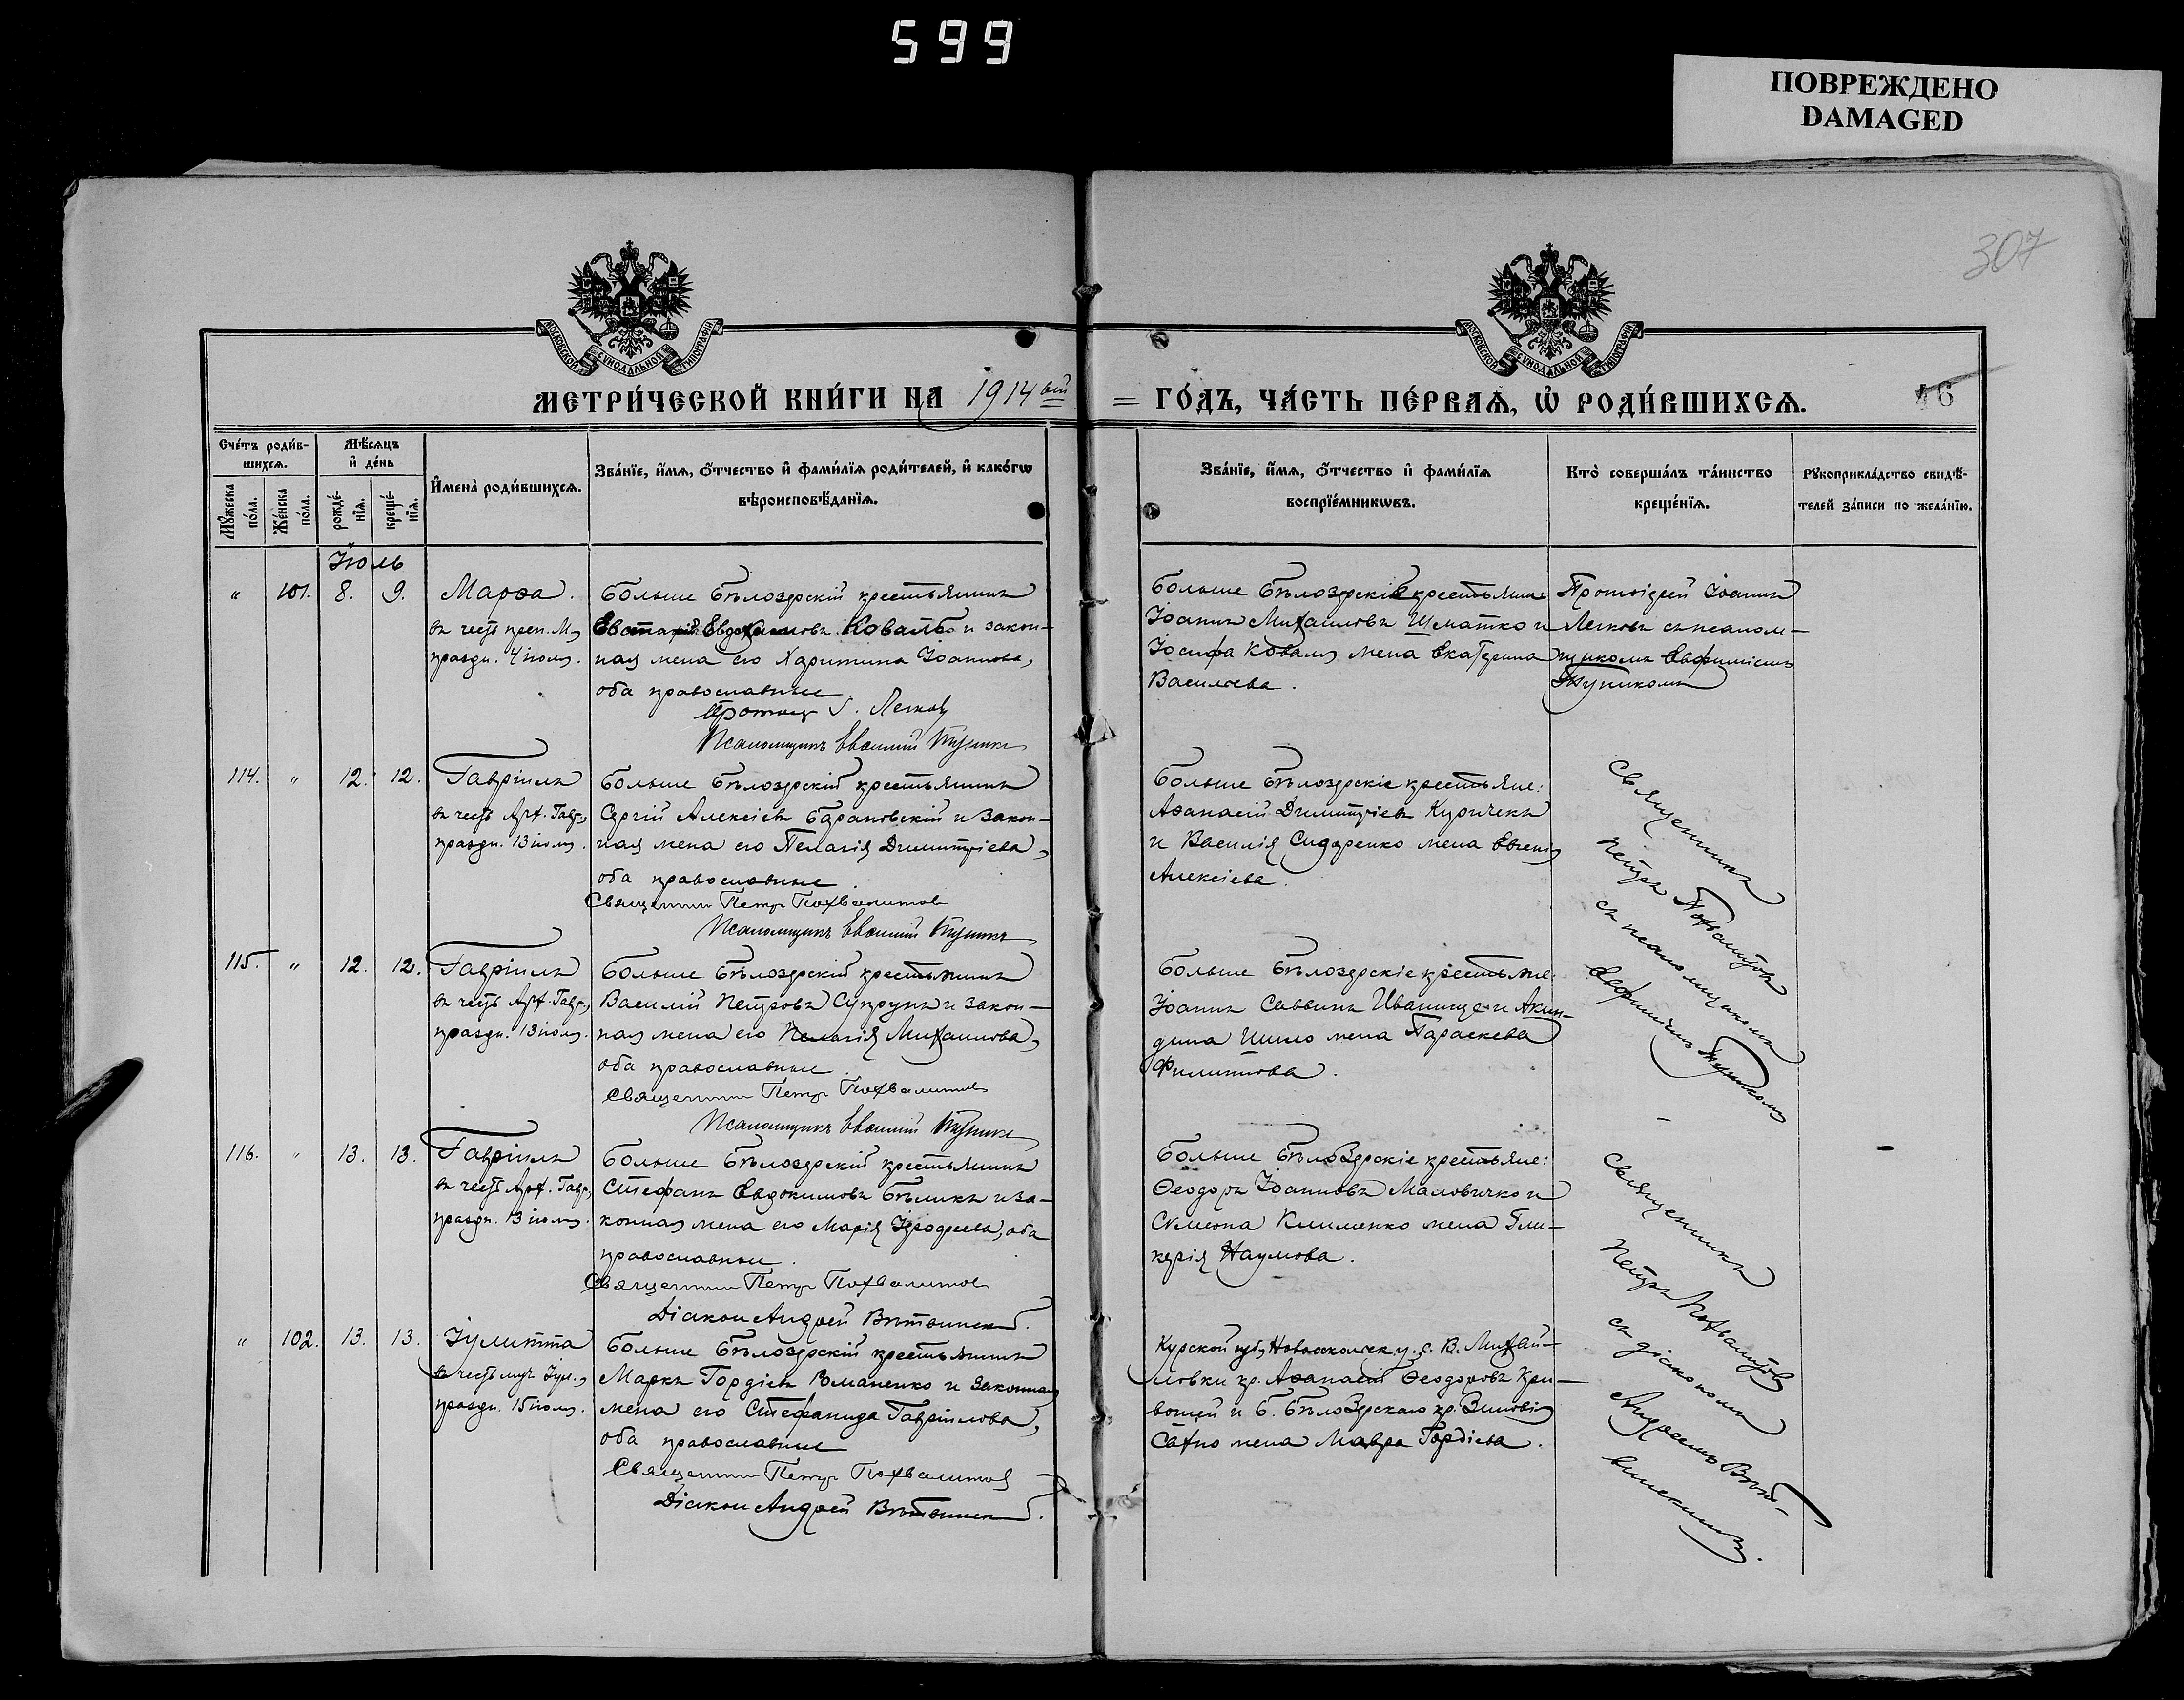 599
ПОВРЕЖДЕНО
DAMAGED
307
МОСКОВСКОЙ СѴНОДАЛЬНОЙ ТИПОГРАФІИ
МОСКОВСКОЙ СѴНОДАЛЬНОЙ ТИПОГРАФІИ
МЕТРИ́ЧЕСКОЙ КНИ́ГИ НА 1914 ый
ГО́ДЪ, ЧА́СТЬ ПЕ́РВАѦ, Ѽ РОДИ́ВШИХСѦ.
46
Сче́тъ роди́в-
шихсѧ.
Мѣ́сѧцъ
и҆ де́нь
Мꙋ́жеска
по́ла.
Же́нска
по́ла.
рожде́-
нїѧ.
креще́-
нїѧ.
И҆мена̀ роди́вшихсѧ.
Зва́нїе, и҆́мѧ, ѻ҆́тчество и҆ фами́лїѧ роди́телей, и҆ како́гѡ
вѣроисповѣ́данїѧ.
Зва́нїе, и҆́мѧ, ѻ҆́тчество и҆ фами́лїѧ
воспрїе́мникѡвъ.
Кто̀ соверша́лъ та́инство
креще́нїѧ.
Рꙋкоприкла́дство свидѣ́-
телей за́писи по жела́нїю.
Іюль
" 101. 8. 9. Марѳа.
въ честь преп. М.,
праздн. 4 іюля.
Больше Бѣлозерскій крестьянинъ
Евдокимовъ Коваль и закон-
ная жена его Харитина Іоаннова,
оба православные
Протоіер. І. Легковъ
Псаломщикъ Евѳимій
Больше Бѣлозерскіе крестьяне
Іоаннъ Михаиловъ Шматко и
Іосифа Коваля жена Екатерина
Васильева.
Протоіерей Іоаннъ
Легковъ съ псалом-
щикомъ Евфиміемъ
114. " 12. 12. Гавріилъ
въ честь Арх. Гавр.,
праздн. 13 іюля.
Больше Бѣлозерскій крестьянинъ
Сергій Алексіевъ Барановскій и закон-
ная жена его Пелагія Димитріева,
оба православные.
Священникъ Петръ Похвалитовъ
Псаломщикъ Евѳимій
Больше Бѣлозерскіе крестьяне:
Аѳанасій Димитріевъ Куричекъ
и Василія Сидоренко жена Евгенія
Алексіева.
Священникъ
Петръ Похвалитовъ
съ псаломщикомъ
Евфиміемъ
115. " 12. 12. Гавріилъ
въ честь Арх. Гавр.,
праздн. 13 іюля.
Больше Бѣлозерскій крестьянинъ
Василій Петровъ Супрунъ и закон-
ная жена его Пелагія Михаилова,
оба православные.
Священникъ Петръ Похвалитовъ
Псаломщикъ Евѳимій
Больше Бѣлозерскіе крестьяне:
Іоаннъ Саввинъ Иванище и Акин-
дина Шило жена Параскева
Филиппова.
116. " 13. 13. Гавріилъ
въ честь Арх. Гавр.,
праздн. 13 іюля.
Больше Бѣлозерскій крестьянинъ
Стефанъ Евдокимовъ Бѣликъ и за-
конная жена его Марія оба
православные.
Священникъ Петръ Похвалитовъ
Діаконъ Андрей Вѣтвинскій.
Больше Бѣлозерскіе крестьяне:
Ѳеодоръ Іоанновъ Маловичко и
Сѵмеона Клименко жена Гли-
керія Наумова.
Священникъ
Петръ Похвалитовъ
съ діакономъ
Андреемъ Вѣт-
винскимъ.
" 102. 13. 13. Іулитта
въ честь муч. Іул.,
праздн. 15 іюля.
Больше Бѣлозерскій крестьянинъ
Маркъ Гордіевъ Романенко и законная
жена его Стефанида Гавріилова,
оба православные
Священникъ Петръ Похвалитовъ
Діаконъ Андрей Вѣтвинскій.
Курской губ., Новооскольск. у., с. В. Михай-
ловки кр. Аѳанасій Ѳеодоровъ Кри-
вошей и Б. Бѣлозерскаго кр. Зиновія
Сахно жена Мавра Гордіева.